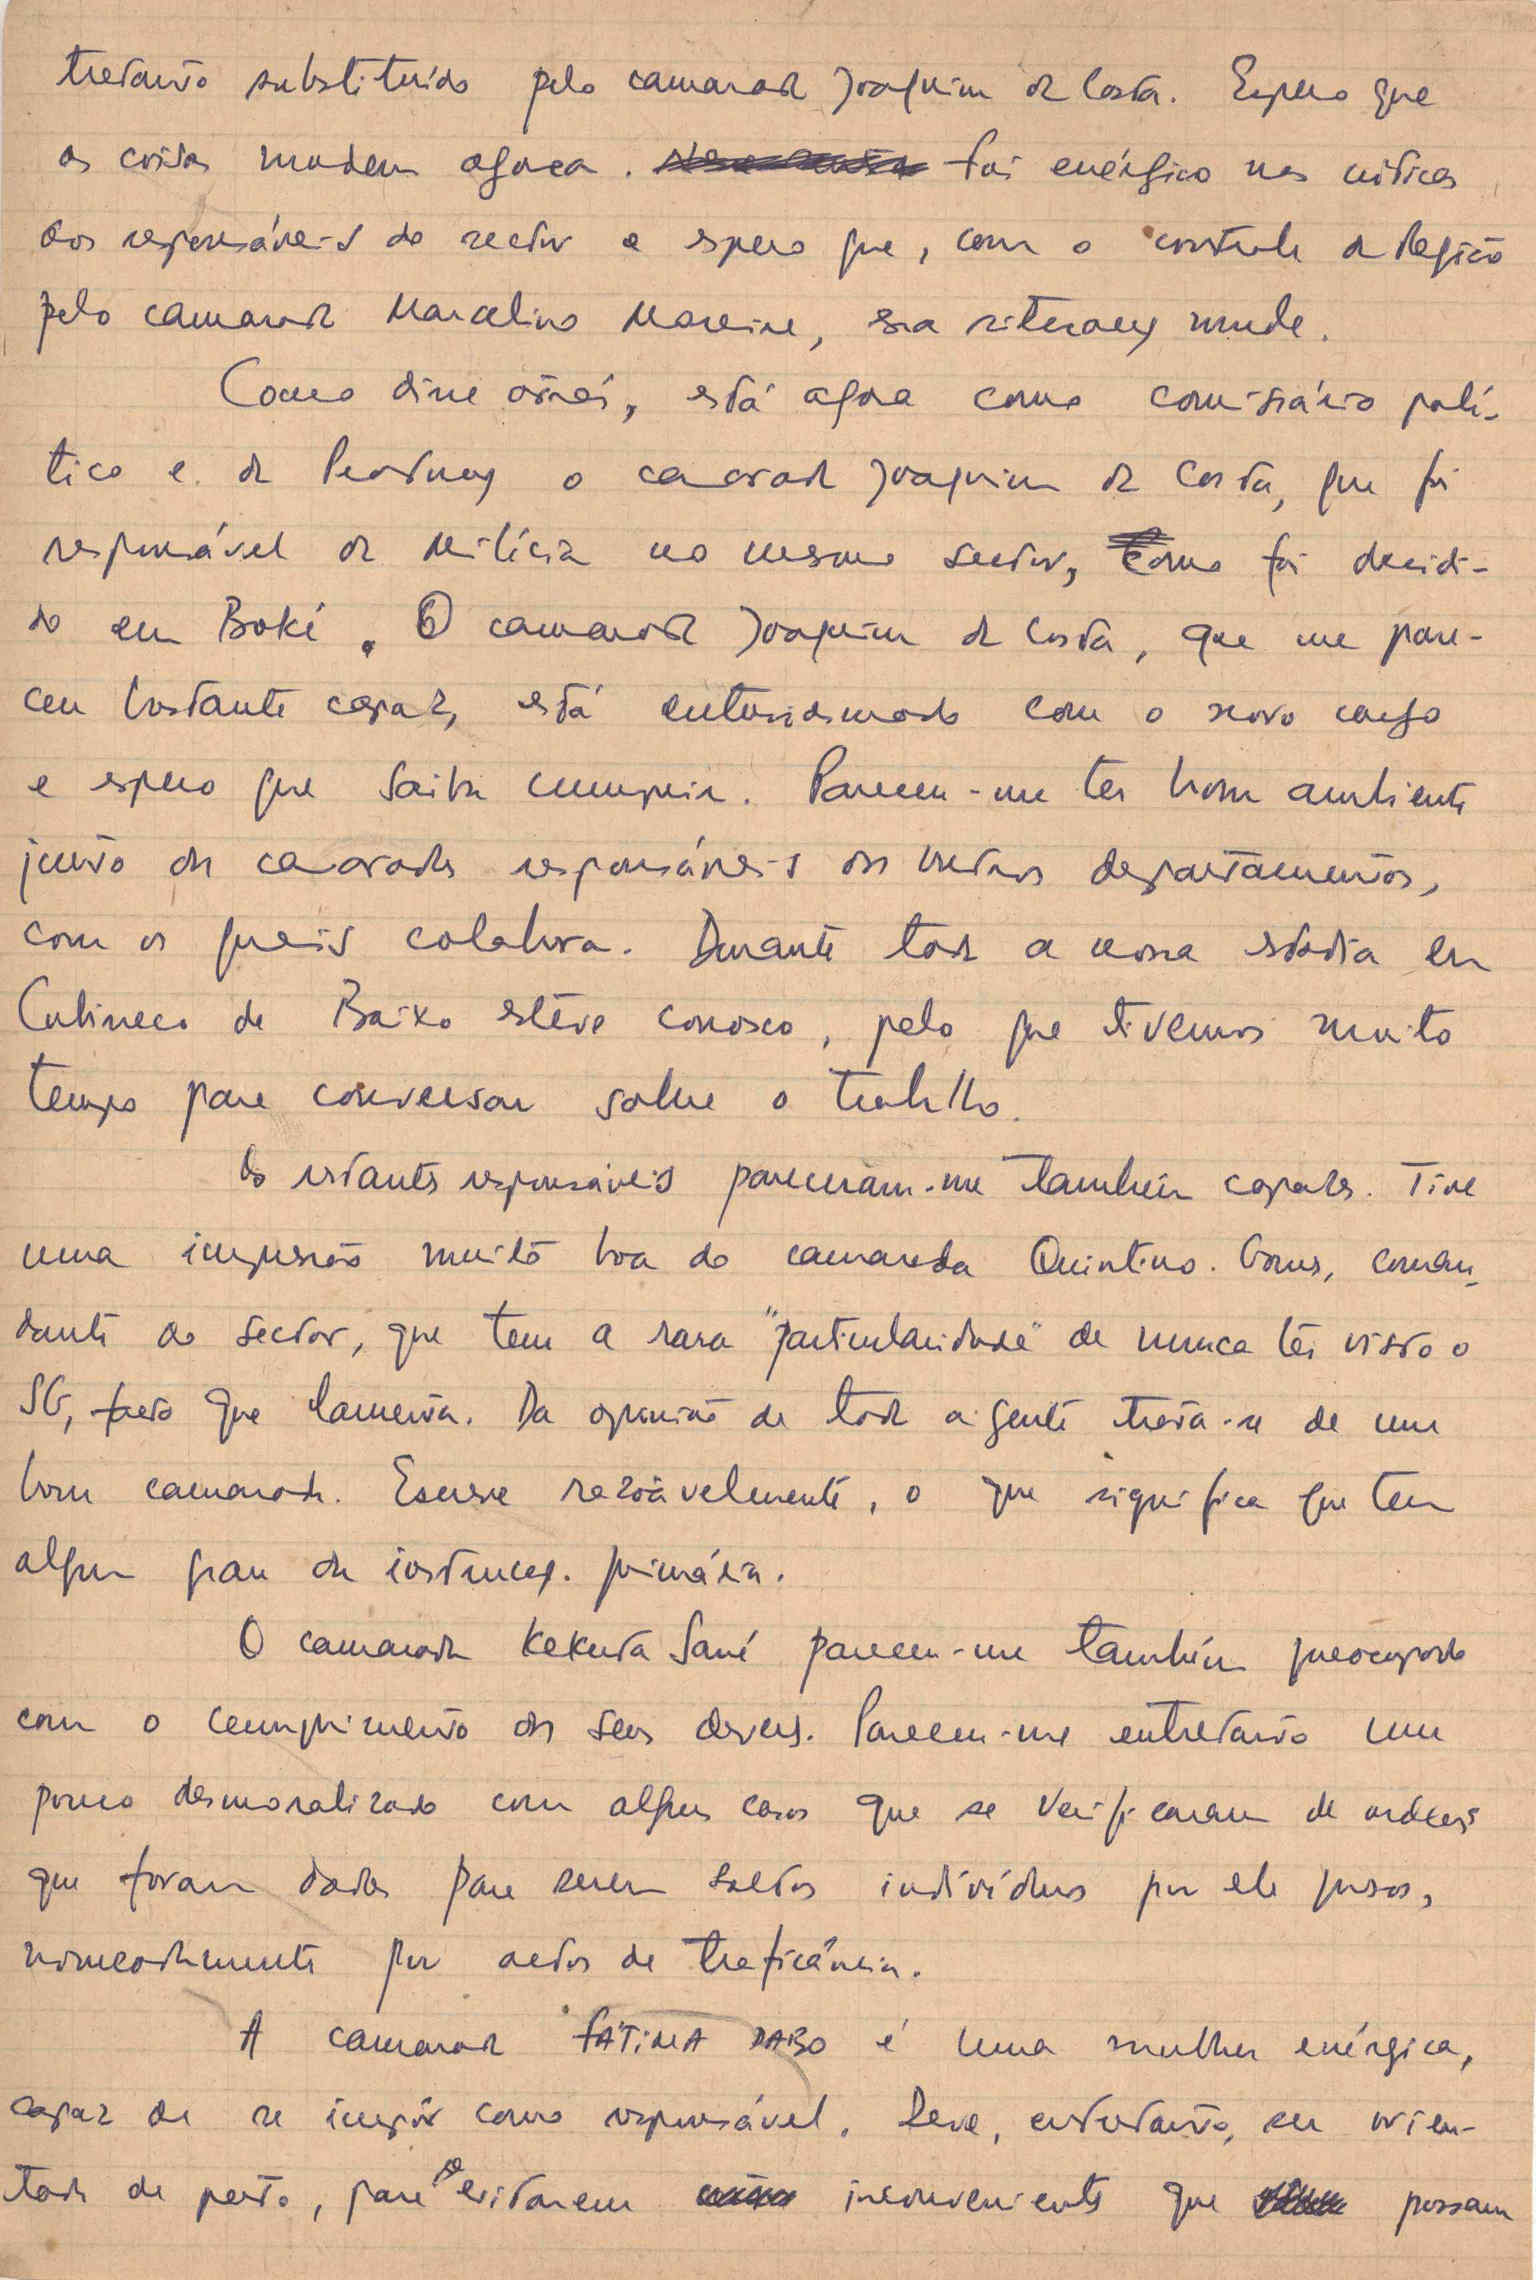 tretanto substituído pelo camarada Joaquim da Costa. Espero que
as coisas mudem agora. fui enérgico nas críticas
aos responsáveis do sector e espero que, com o controle da Região
pelo camarada Marcelino Moreira, essa situação mude.
Como disse atrás, está agora como comissário polí-
tico e da Produção o camarada Joaquim da Costa, que foi
responsável da Milícia no mesmo sector, como foi decidi-
do em Boké. O camarada Joaquim da Costa, que me pare-
ceu bastante capaz, está entusiasmado com o novo cargo
e espero que saiba cumprir. Pareceu-me ter bom ambiente
junto dos camaradas responsáveis dos outros departamentos,
com os quais colabora. Durante toda a nossa estadia em
Cubineco de Baixo estêve conosco, pelo que tivemos muito
tempo para conversar sobre o trabalho.
Os restantes responsáveis pareceram-me também capazes. Tive
uma impressão muito boa do camarada Quintino Gomes, coman-
dante do sector, que tem a rara "particularidade" de nunca ter visto o
SG, facto que lamenta. Da opinião de toda a gente trata-se de um
bom camarada. Escreve razoàvelmente, o que significa que tem
algum grau de instrução primária.
O camarada Kekuta Sané pareceu-me também preocupado
com o cumprimento dos seus deveres. Pareceu-me entretanto um
pouco desmoralizado com alguns casos que se verificaram de ordens
que foram dadas para serem soltos indivíduos por ele presos,
nomeadamente por actos de traficância.
A camarada FÁTIMA DABO é uma mulher enérgica,
capaz de se impôr como responsável. Deve, entretanto, ser orien-
tada de perto, para se evitarem inconvenientes que possam